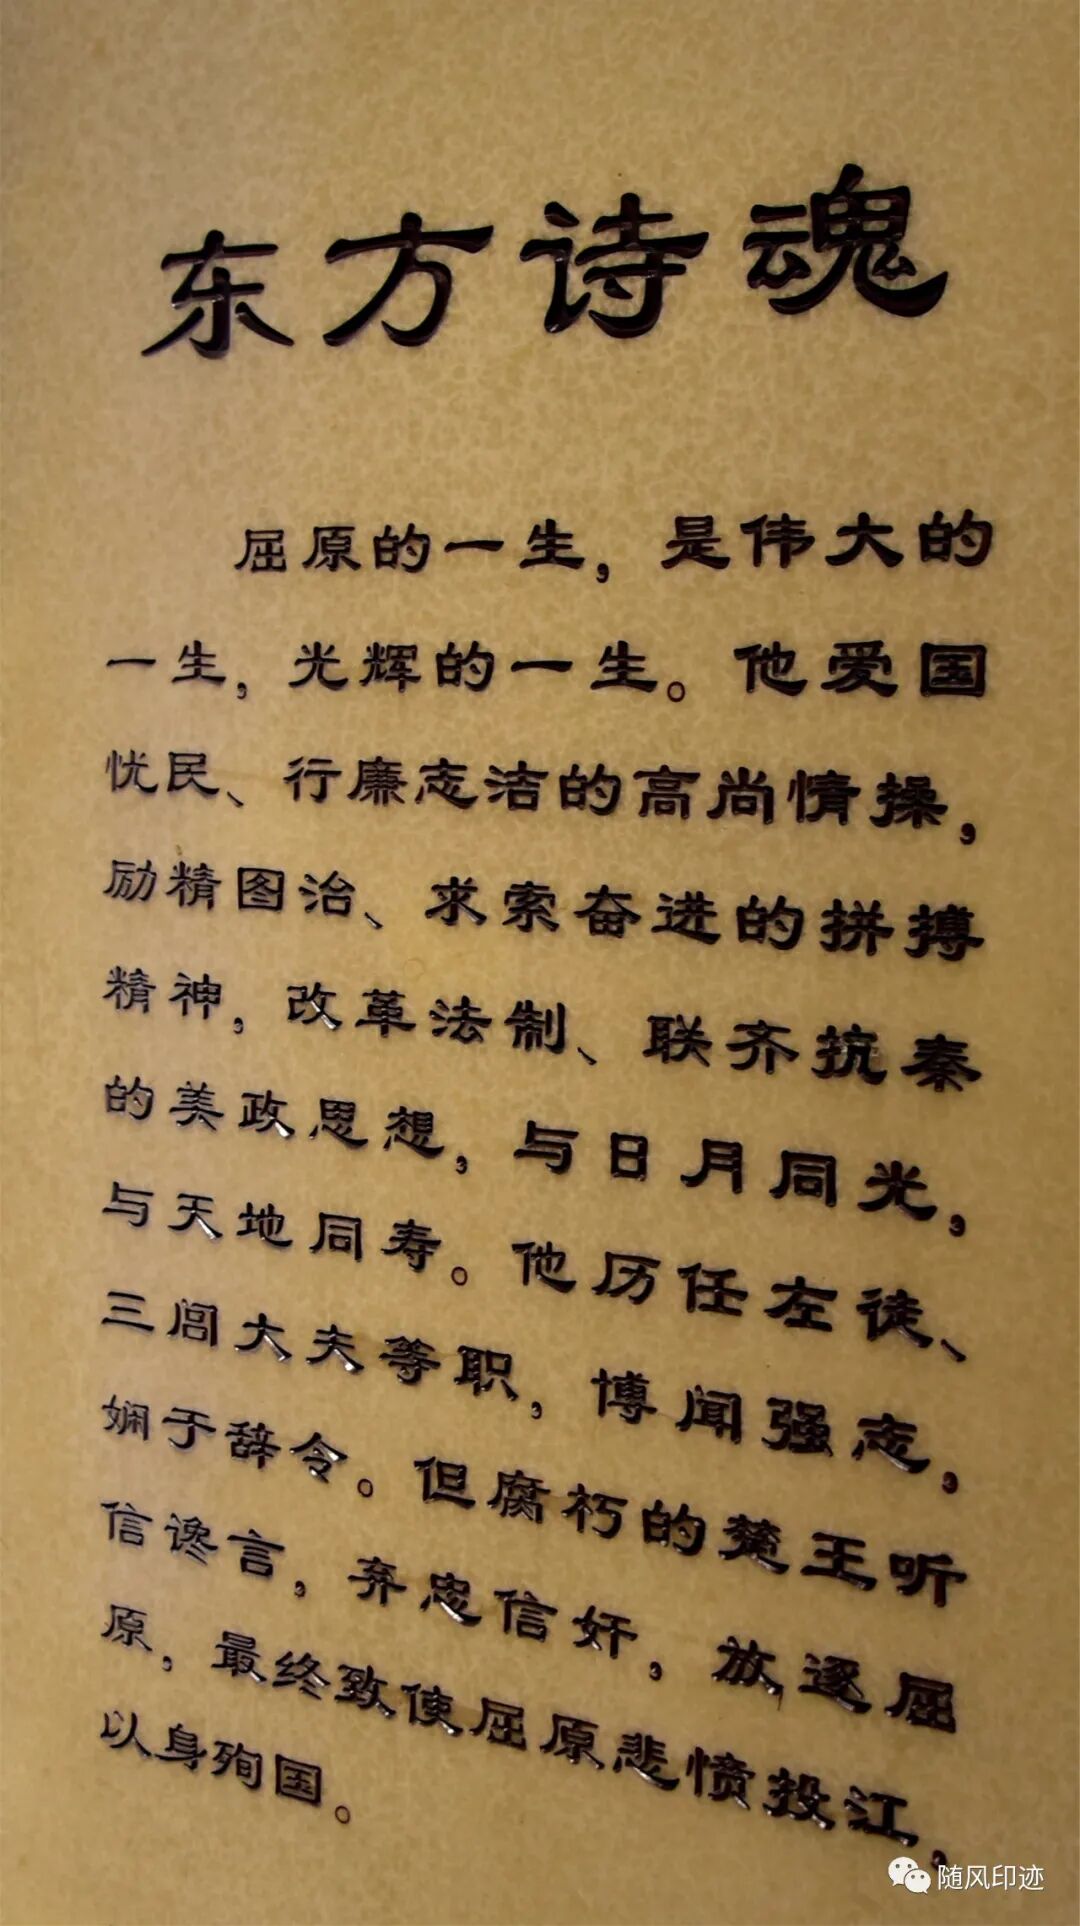 东方诗魂
屈原的一生，是伟大的
一生，光辉的一生。他爱国
忧民、行廉志洁的高尚情操，
励精图治、求索奋进的拼搏
精神，改革法制、联齐抗秦
的美政思想，与日月同光，
与天地同寿。他历任左徒、
三闾大夫等职，博闻强志，
娴于辞令。但腐朽的楚王听
信谗言，弃忠信奸，放逐屈
原，最终致使屈原悲愤投江，
以身殉国。
随风印迹